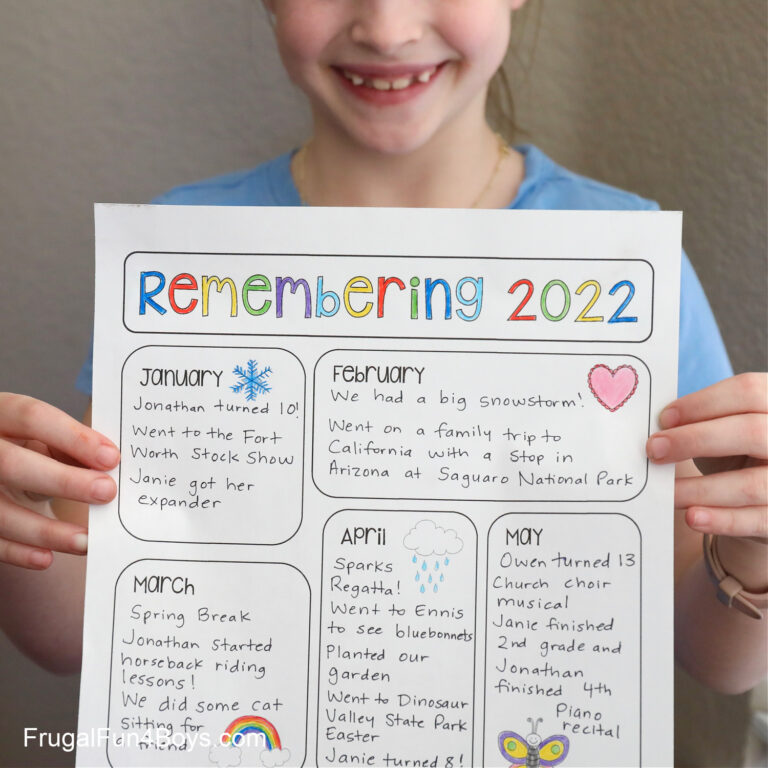 Remembering 2022
January
Jonathan turned 10!
Went to the Fort
Worth Stock Show
Janie got her
expander
February
We had a big snowstorm!
Went on a family trip to
California with a stop in
Arizona at Saguaro National Park
March
Spring Break
Jonathan started
horseback riding
lessons!
We did some cat
sitting for
a friend
April
Sparks
Regatta!
Went to Ennis
to see bluebonnets
Planted our
garden
Went to Dinosaur
Valley State Park
Easter
Janie turned 8!
May
Owen turned 13
Church choir
musical
Janie finished
2nd grade and
Jonathan
finished 4th
Piano
recital
FrugalFun4Boys.com